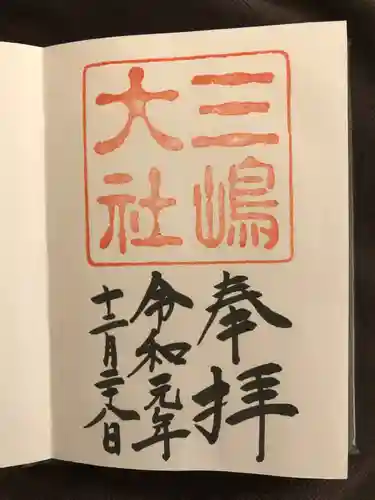 三嶋
大社
奉拝
令和元年
十二月二十八日